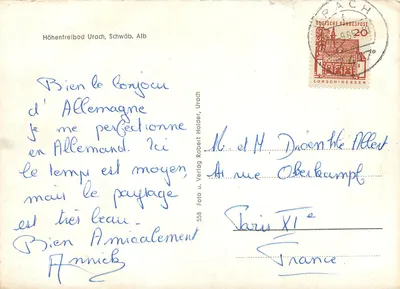 Höhenfreibad Urach, Schwäb. Alb
Bien le bonjour
d'Allemagne
je me perfectionne
en Allemand. Ici
le temps est moyen,
mais le paysage
est très beau.
Bien Amicalement
Annick
558 Foto u. Verlag Robert Holder, Urach
URACH
DEUTSCHE BUNDESPOST
20
LORSCH/HESSEN
M et M Albert
41 rue Oberkampf
Paris XIe
France